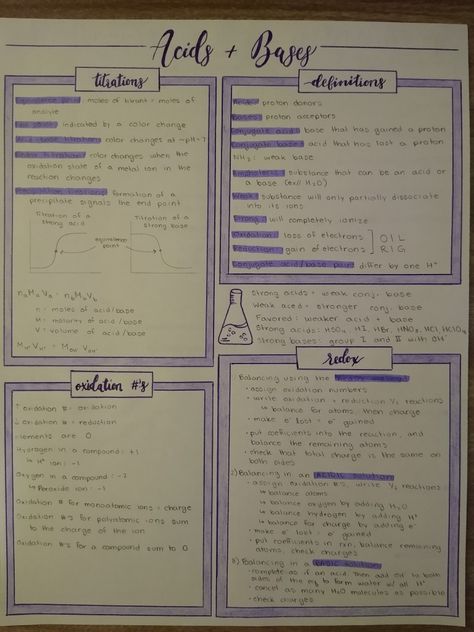 Acids + Bases
titrations
Equivalence point: moles of titrant = moles of
analyte
End point: indicated by a color change
Acid-base titration: color changes at ~pH=7
Redox titration: color changes when the
oxidation state of a metal ion in the
reaction changes
Precipitation titrations: formation of a
precipitate signals the end point
Titration of a
strong acid
Titration of a
strong base
equivalence
point
naMaVa = nbMbVb
n = moles of acid/base
M = molarity of acid/base
V = volume of acid/base
definitions
Acids: proton donors
Bases: proton acceptors
Conjugate acid: base that has gained a proton
Conjugate base: acid that has lost a proton
NH3: weak base
Amphoteric: substance that can be an acid or
a base (ex// H2O)
Weak: substance will only partially dissociate
into its ions
Strong: will completely ionize
Oxidation: loss of electrons ] OIL
Reduction: gain of electrons ] RIG
Conjugate acid/base pair: differ by one H+
Strong acids = weak conj. base
Weak acid = stronger conj. base
Favored: weaker acid + base
Strong acids: HI, HBr, HNO3, HCl, HClO4
Strong bases: group I and II with OH
oxidation #'s
↑ oxidation #: oxidation
↓ oxidation # = reduction
Elements are 0
Hydrogen in a compound: +1
↳ H- ion: -1
Oxygen in a compound: -2
↳ Peroxide ion: -1
Oxidation # for monoatomic ions = charge
Oxidation #'s for polyatomic ions sum
to the charge of the ion
Oxidation #'s for a compound sum to 0
redox
Balancing using the
• assign oxidation numbers
• write oxidation + reduction ½ reactions
↳ balance for atoms, then charge
• make e- lost = e- gained
• put coefficients into the reaction, and
balance the remaining atoms
• check that total charge is the same on
both sides
2) Balancing in an acidic solution:
• assign oxidation #'s, write ½ reactions
↳ balance atoms
↳ balance oxygen by adding H2O
↳ balance hydrogen by adding H+
↳ balance for charge by adding e-
• make e- lost = e- gained
• put coefficients in rxn, balance remaining
atoms, check charges
3) Balancing in a basic solution:
• complete as if an acid, then add OH- to both
sides of the eq. to form water w/ all H+
• cancel as many H2O molecules as possible
• check charges